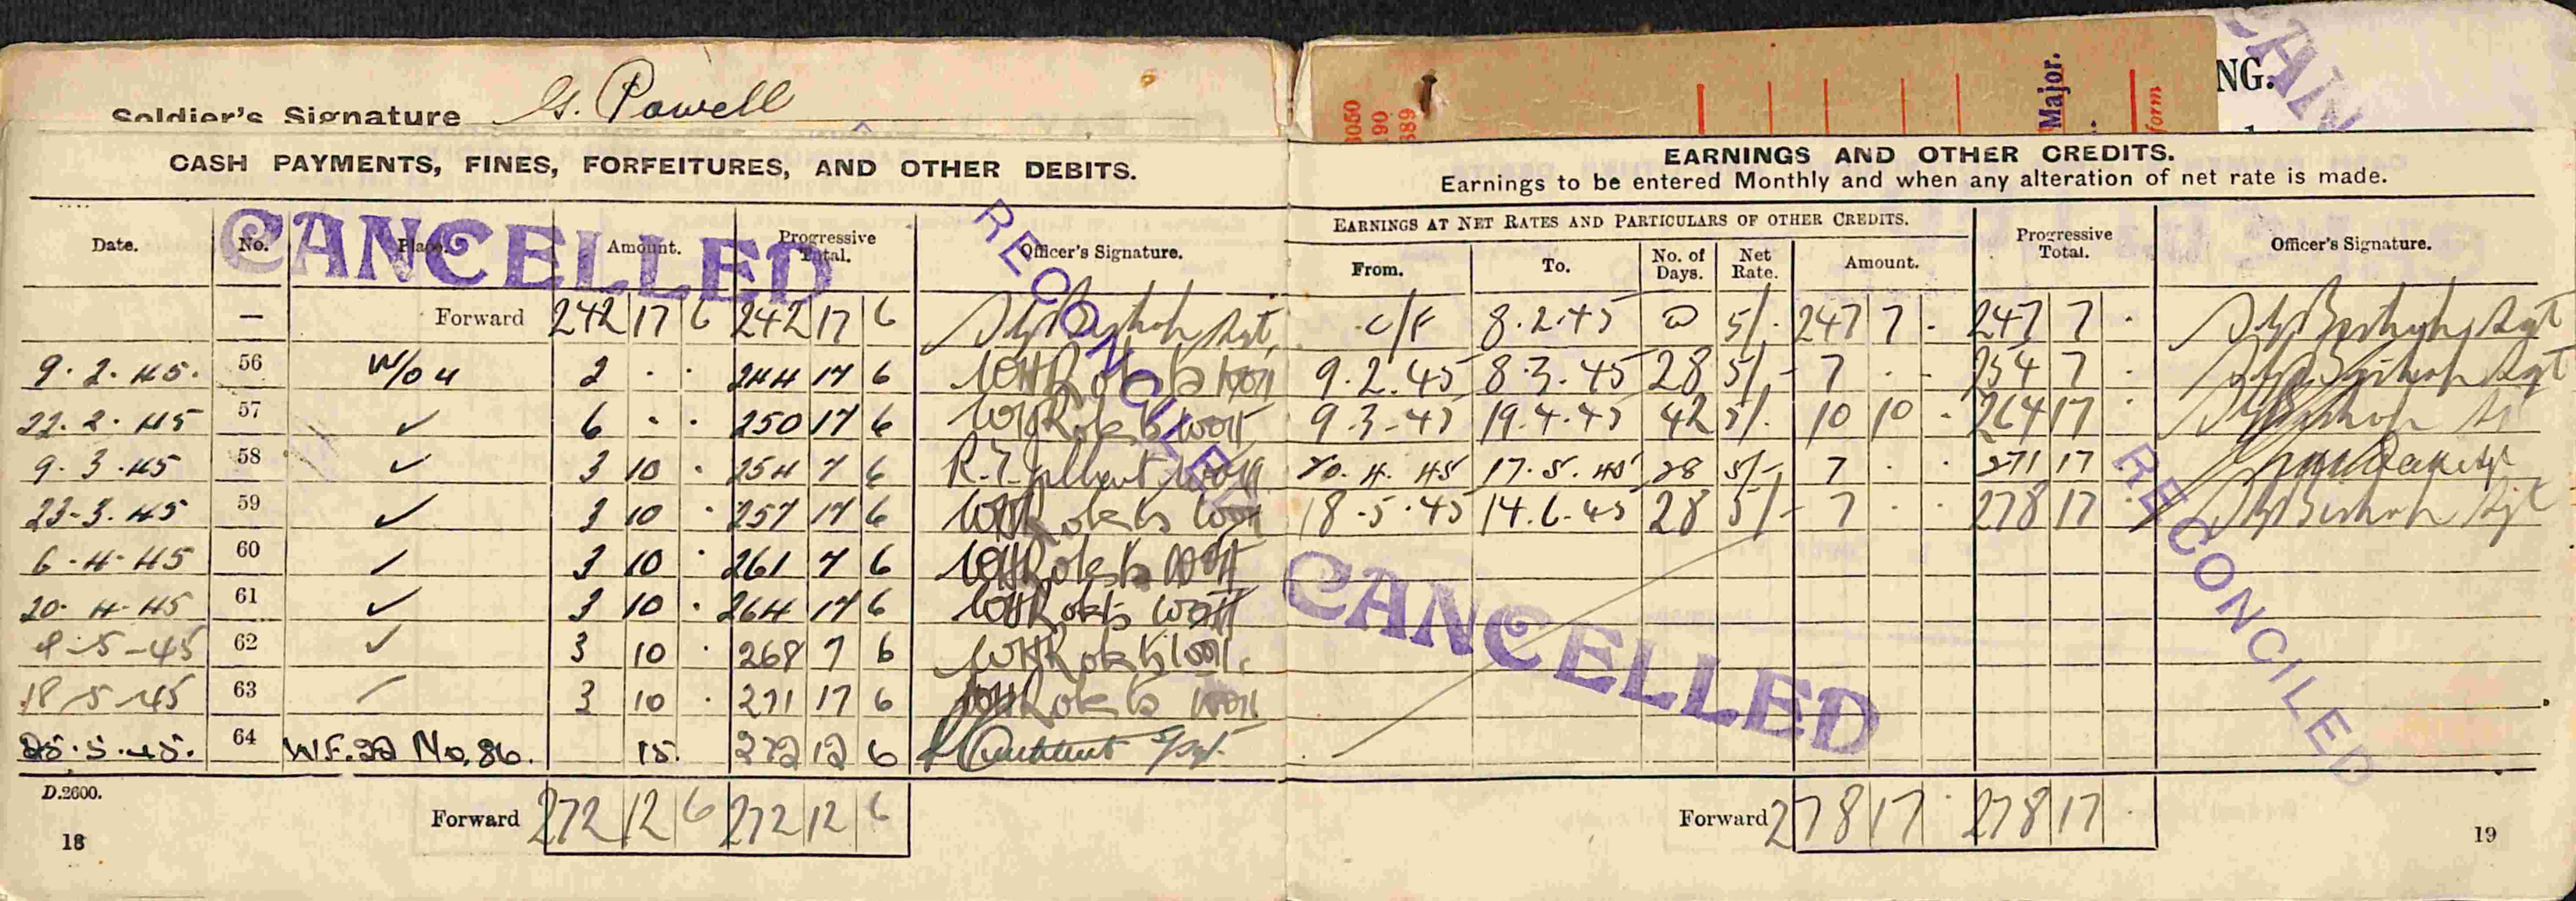 Soldier's Signature G. Powell
CASH PAYMENTS, FINES, FORFEITURES, AND OTHER DEBITS.
Date. No. Place. Amount. Progressive Total. Officer's Signature.
CANCELLED
RECONCILED
— Forward 242 17 6 242 17 6
9.2.45. 56 W/O 4 2 . . 244 17 6
22.2.45 57 ✓ 6 . . 250 17 6
9.3.45 58 ✓ 3 10 . 254 7 6
23-3.45 59 ✓ 3 10 . 257 17 6
6-4-45 60 3 10 . 261 7 6
20.4-45 61 ✓ 3 10 . 264 17 6
-5-45 62 ✓ 3 10 . 268 7 6
18-5-45 63 3 10 . 271 17 6
25.5.45. 64 W.F.22 No.86. 15. 272 12 6
D.2600.
Forward 272 12 6 272 12 6
18
3050
90
389
Major.
form
NG.
CAN
EARNINGS AND OTHER CREDITS.
Earnings to be entered Monthly and when any alteration of net rate is made.
EARNINGS AT NET RATES AND PARTICULARS OF OTHER CREDITS. Progressive Total. Officer's Signature.
From. To. No. of Days. Net Rate. Amount.
C/F 8.2.45 5/. 247 7 . 247 7 . Sgt
9.2.45 8.3.45 28 5/- 7 . - 254 7 . Sgt
9.3-45 19.4.45 42 5/. 10 10 . 264 17 .
20.4.45 17.5.45 28 5/- 7 . . 271 17
18.5.45 14.6.45 28 5/- 7 . . 278 17 . Sgt
CANCELLED
RECONCILED
Forward 278 17 . 278 17 .
19